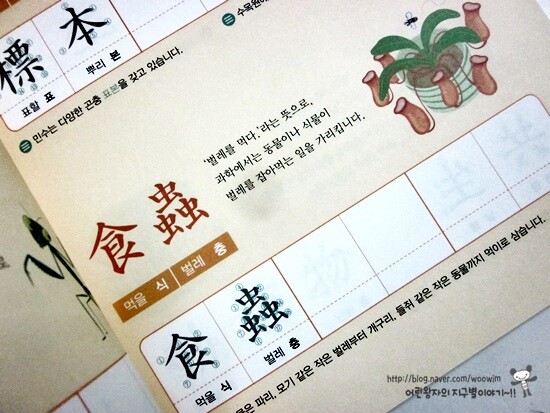 수목원에
標 本
표할 표 뿌리 본
민수는 다양한 곤충 표본을 갖고 있습니다.
'벌레를 먹다.'라는 뜻으로,
과학에서는 동물이나 식물이
벌레를 잡아먹는 일을 가리킵니다.
食 蟲
먹을 식 벌레 충
食 蟲
먹을 식 벌레 충
은 파리, 모기 같은 작은 벌레부터 개구리, 들쥐 같은 작은 동물까지 먹이로 삼습니다.
http://blog.naver.com/woowjm
어린왕자의 지구별이야기~!!